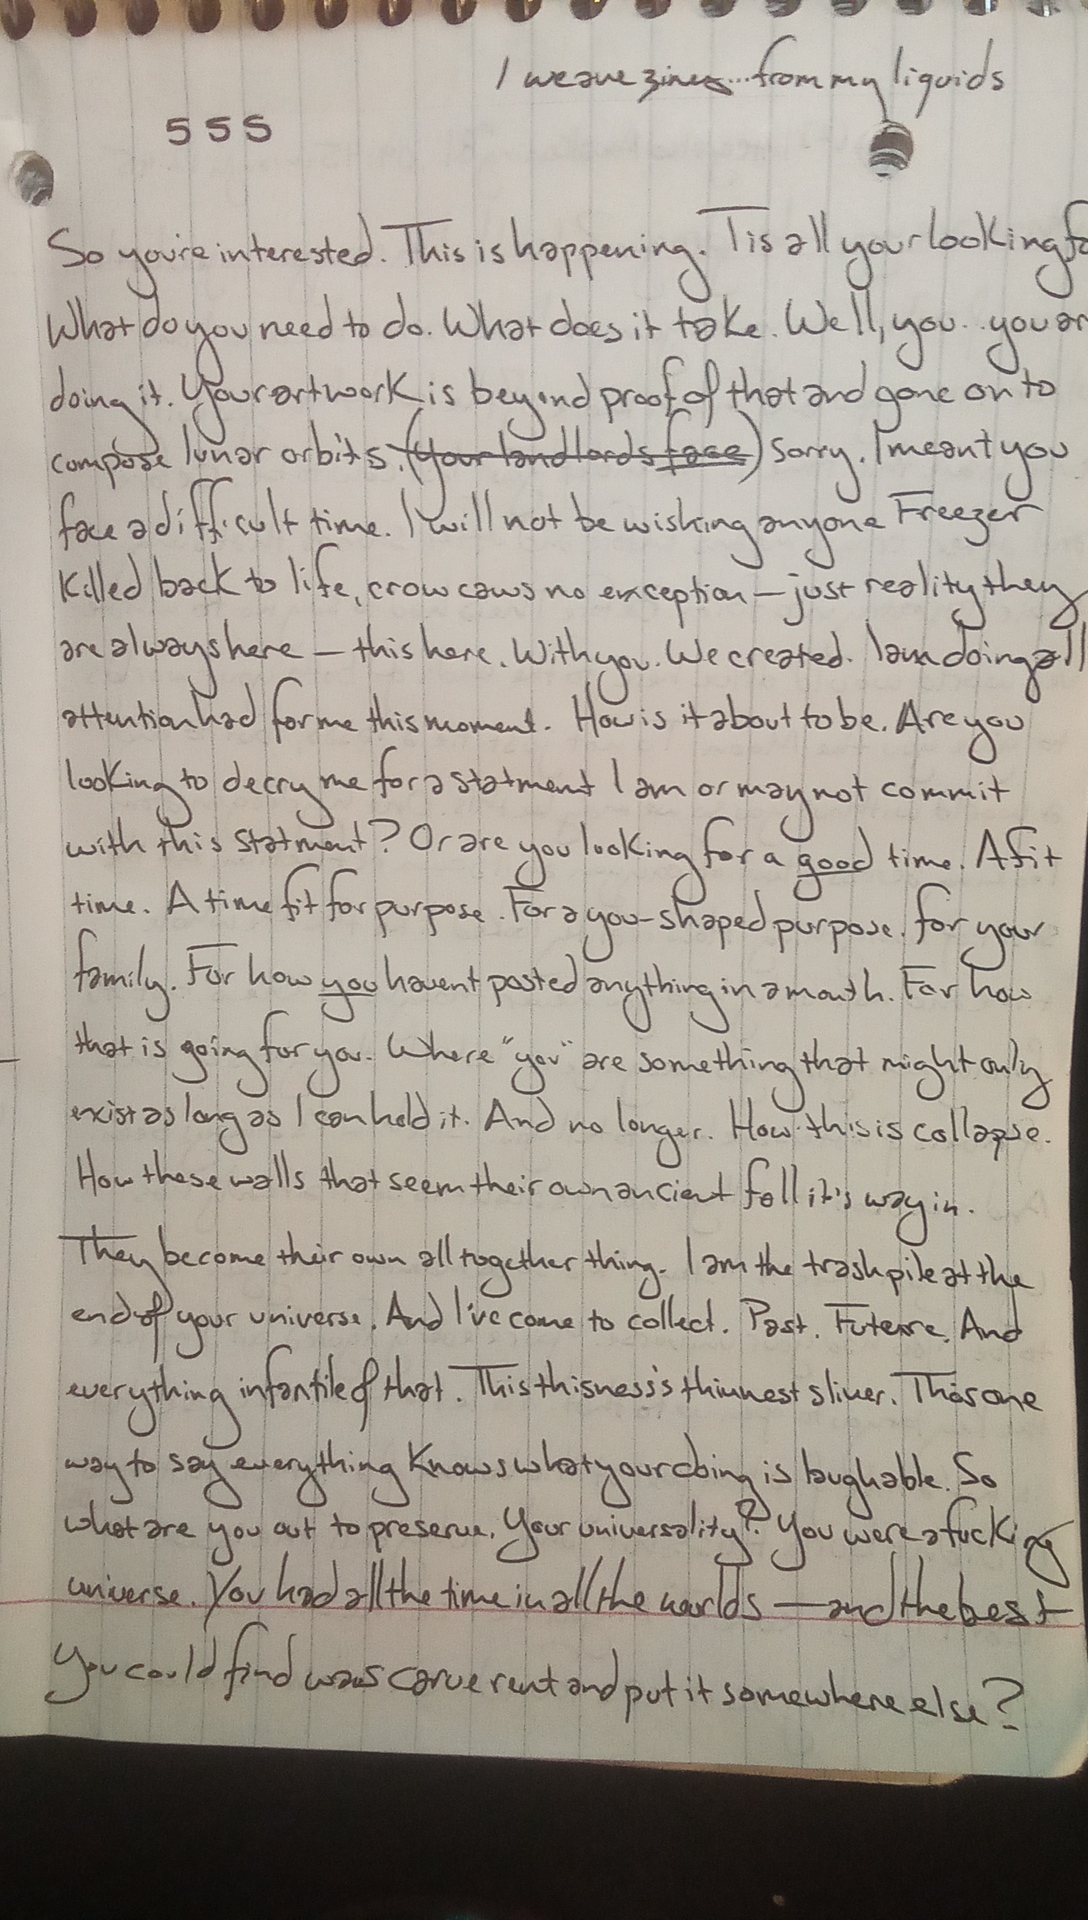 I weave zines... from my liquids
555
So you're interested. This is happening. Tis all your looking fo
What do you need to do. What does it take. Well, you.. you ar
doing it. Your artwork is beyond proof of that and gone on to
compose lunar orbits. (Your landlords face) Sorry. I meant you
face a difficult time. I will not be wishing anyone Freezer
Killed back to life, crow caws no exception — just reality they
are always here — this here. With you. We created. I am doing all
attention had for me this moment. How is it about to be. Are you
looking to decry me for a statment I am or may not commit
with this statment? Or are you looking for a good time. A fit
time. A time fit for purpose. For a you-shaped purpose. for your
family. For how you havent posted anything in a month. For how
that is going for you. Where "you" are something that might only
exist as long as I can hold it. And no longer. How this is collapse.
How these walls that seem their own ancient fall it's way in.
They become their own all together thing. I am the trash pile at the
end of your universe. And I've come to collect. Past. Future. And
everything infantile of that. This thisness's thinnest sliver. This one
way to say everything Knows what your doing is laughable. So
what are you out to preserve. Your universality? You were a fucking
universe. You had all the time in all the worlds — and the best
You could find was carve rent and put it somewhere else?